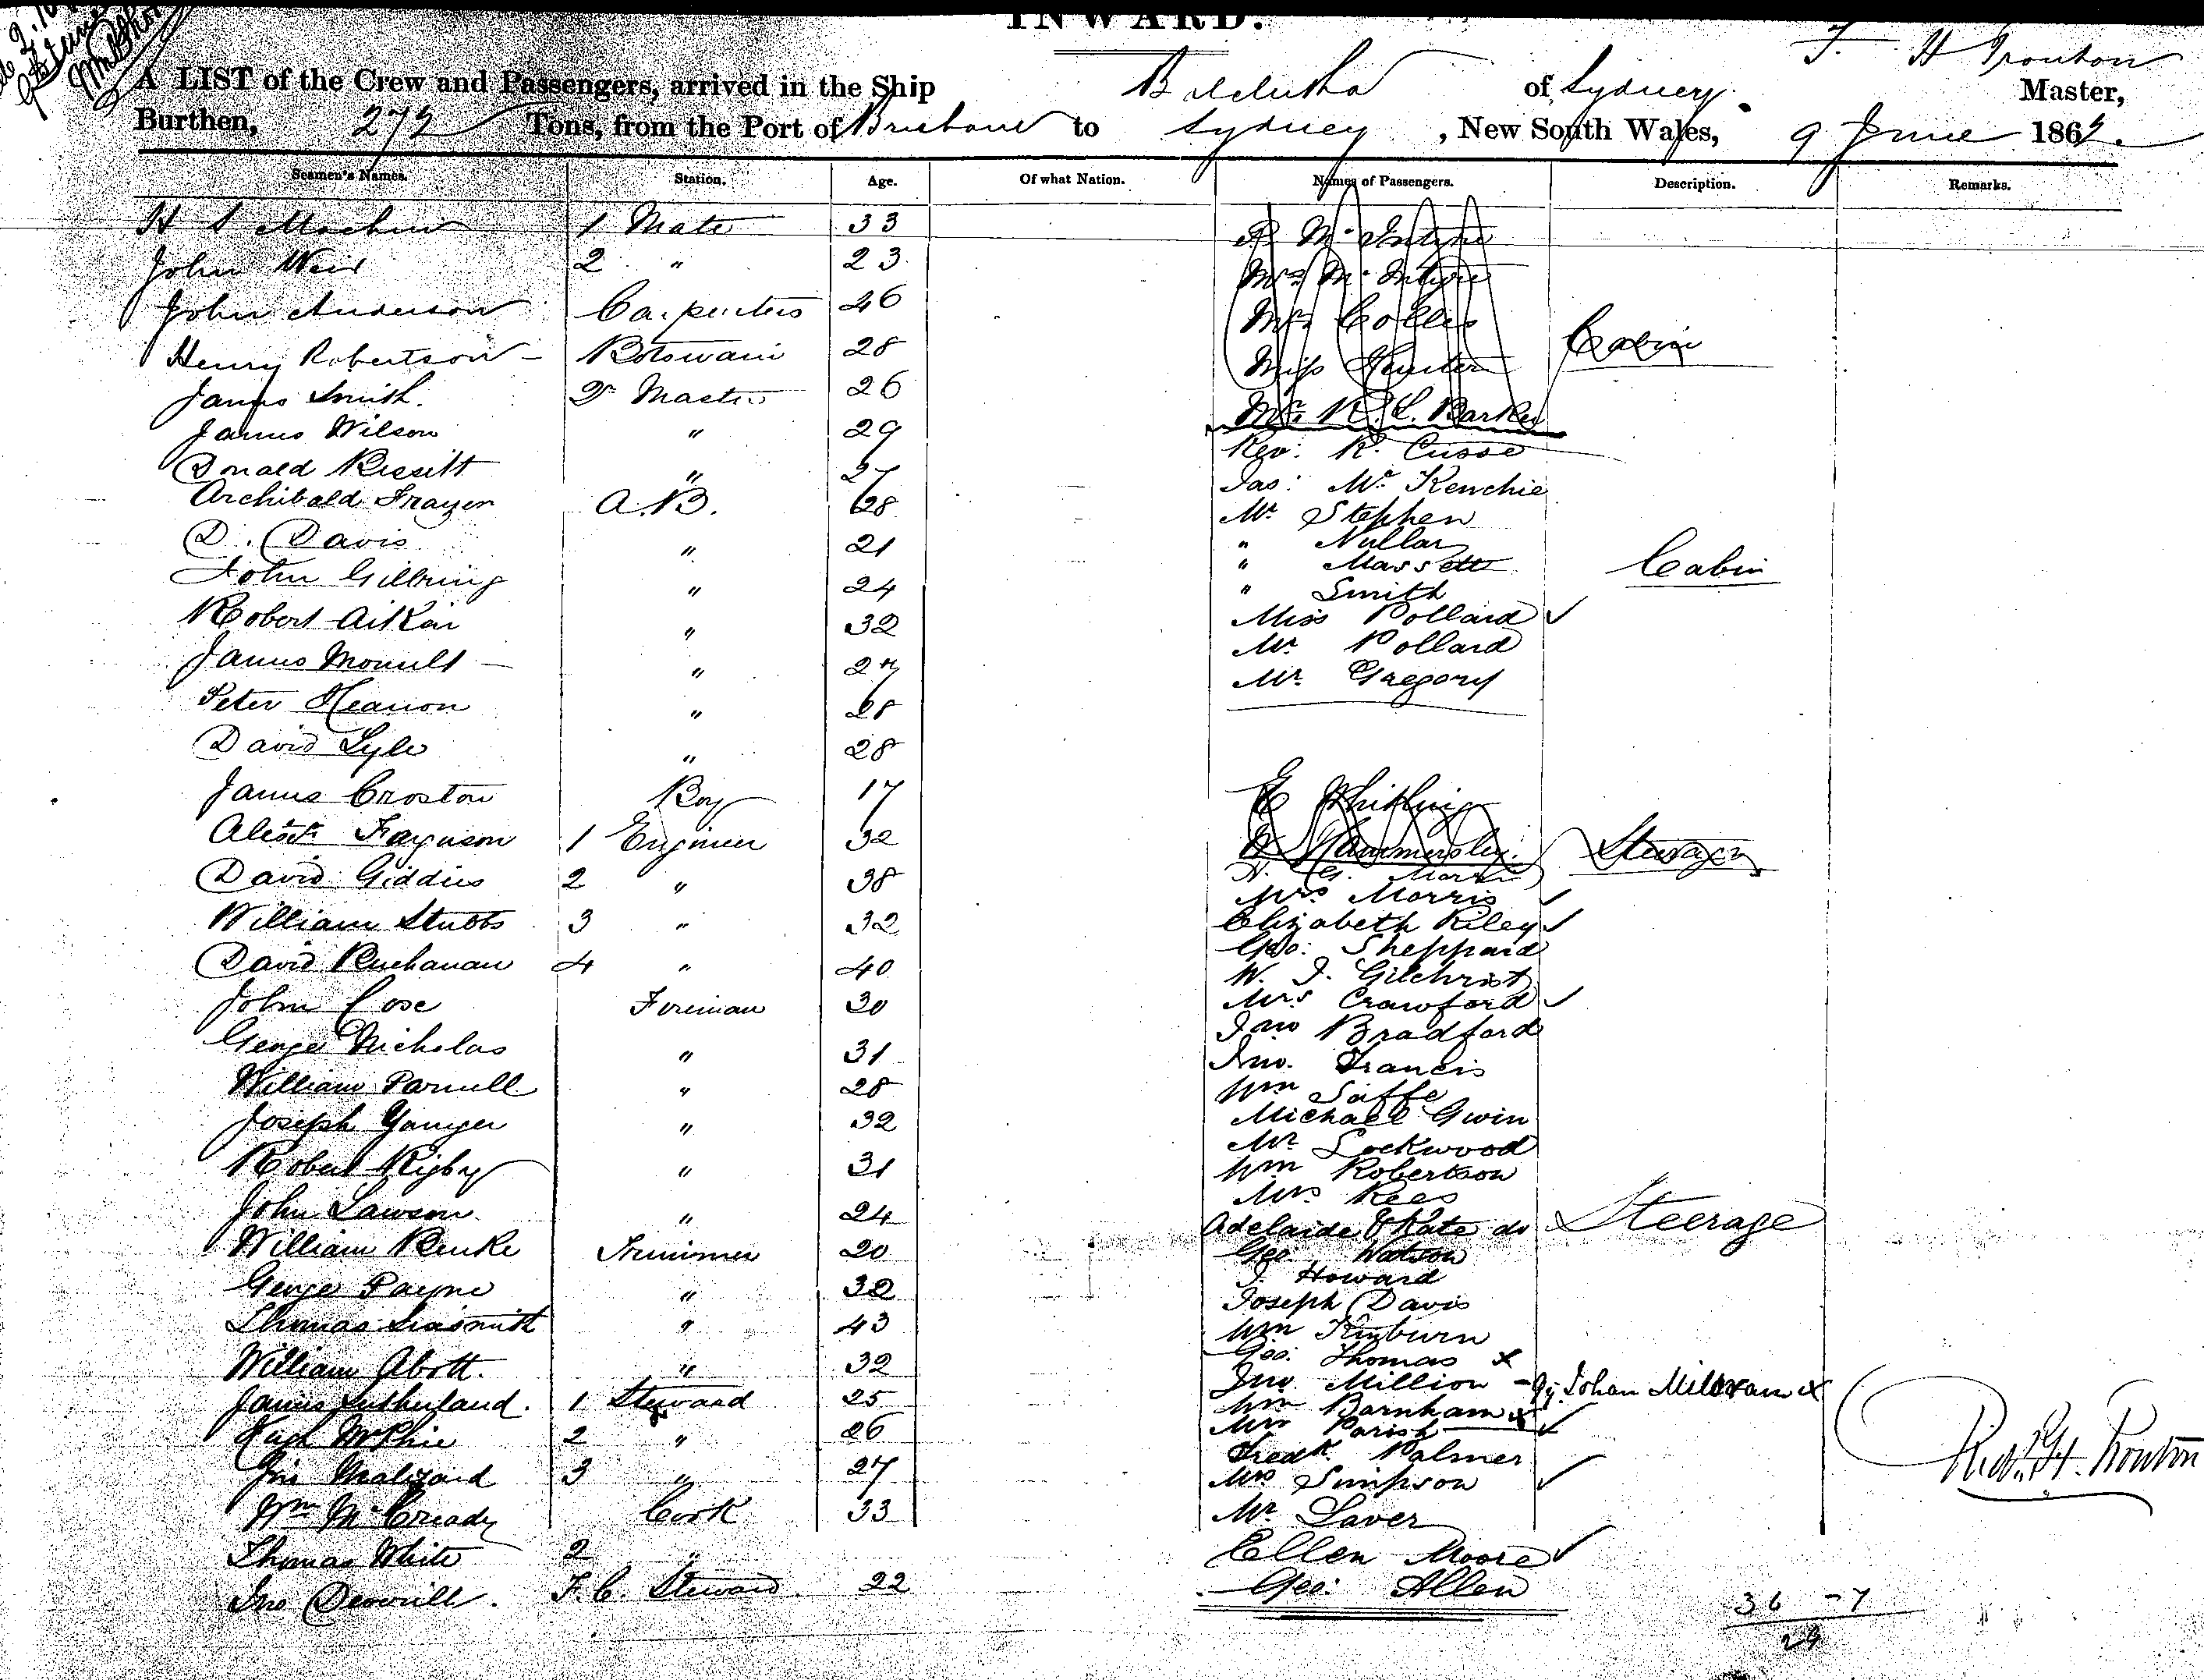 INWARD.
T. H Trouton
A LIST of the Crew and Passengers, arrived in the Ship Balclutha of Sydney Master,
Burthen, 272 Tons, from the Port of Brisbane to Sydney, New South Wales, 9 June 186
Seamen's Names. Station. Age. Of what Nation. Names of Passengers. Description. Remarks.
H S Machin 1 Mate 33
John Weir 2 " 23
John Anderson Carpenters 46
Henry Robertson Botswain 28
James Smith. Qr Master 26
James Wilson " 29
Donald Bissitt " 27
Archibald Frazer A.B. 28
D. Davis " 21
John Gilbring " 24
Robert Aitkin " 32
James " 27
Peter Heanon " 28
David Lyle " 28
James Croston Boy 17
Alexr Ferguson 1 Engineer 32
David Giddies 2 " 38
William Stubbs 3 " 32
David Buchanan 4 " 40
John Cose Fireman 30
George Nicholas " 31
William Parnell " 28
Joseph Younger " 32
Robert Rigby " 31
John Lawson " 24
William Burke Trimmer 20
George Payne " 32
Thomas " 43
William Abott. " 32
James Sutherland. 1 Steward 25
Hugh McPhie 2 " 26
Jno 3 " 27
Wm McCready Cook 33
Thomas White 2 "
Jno F.C. Steward 22
R. McIntyre
Mrs McIntyre
Mrs Collis
Miss Hunter
Mr R. L. Barker
Cabin
Rev: R. Cusse
Jas: McKenchie
Mr Stephen
" Nullar
" Massett
" Smith
Miss Pollard ✓
Mr Pollard
Mr Gregory
Cabin
E Whithing
Hammersley.
Steerage
H. G. Morris
Mrs Morris ✓
Elizabeth Riley ✓
Geo: Sheppard
W. J. Gilchrist
Mrs Crawford ✓
Jno Bradford
Jno. Francis
Wm Saffe
Michael Gwin
Mr Lockwood
Wm Robertson
Mrs Rees
Adelaide & Kate do
Geo Watson
J. Howard
Joseph Davis
Wm Kinburn
Geo: Thomas x
Jno Million - Johan x
Wm Barnham x
Mrs Parish ✓
Fredk. Palmer
Mrs Simpson ✓
Mr Laver
Ellen Moore ✓
Geo: Allen
Steerage
Trouton
36 - 7
29